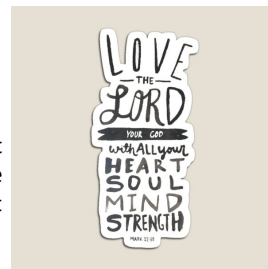 LOVE
THE
LORD
YOUR GOD
with All your
HEART
SOUL
MIND
STRENGTH